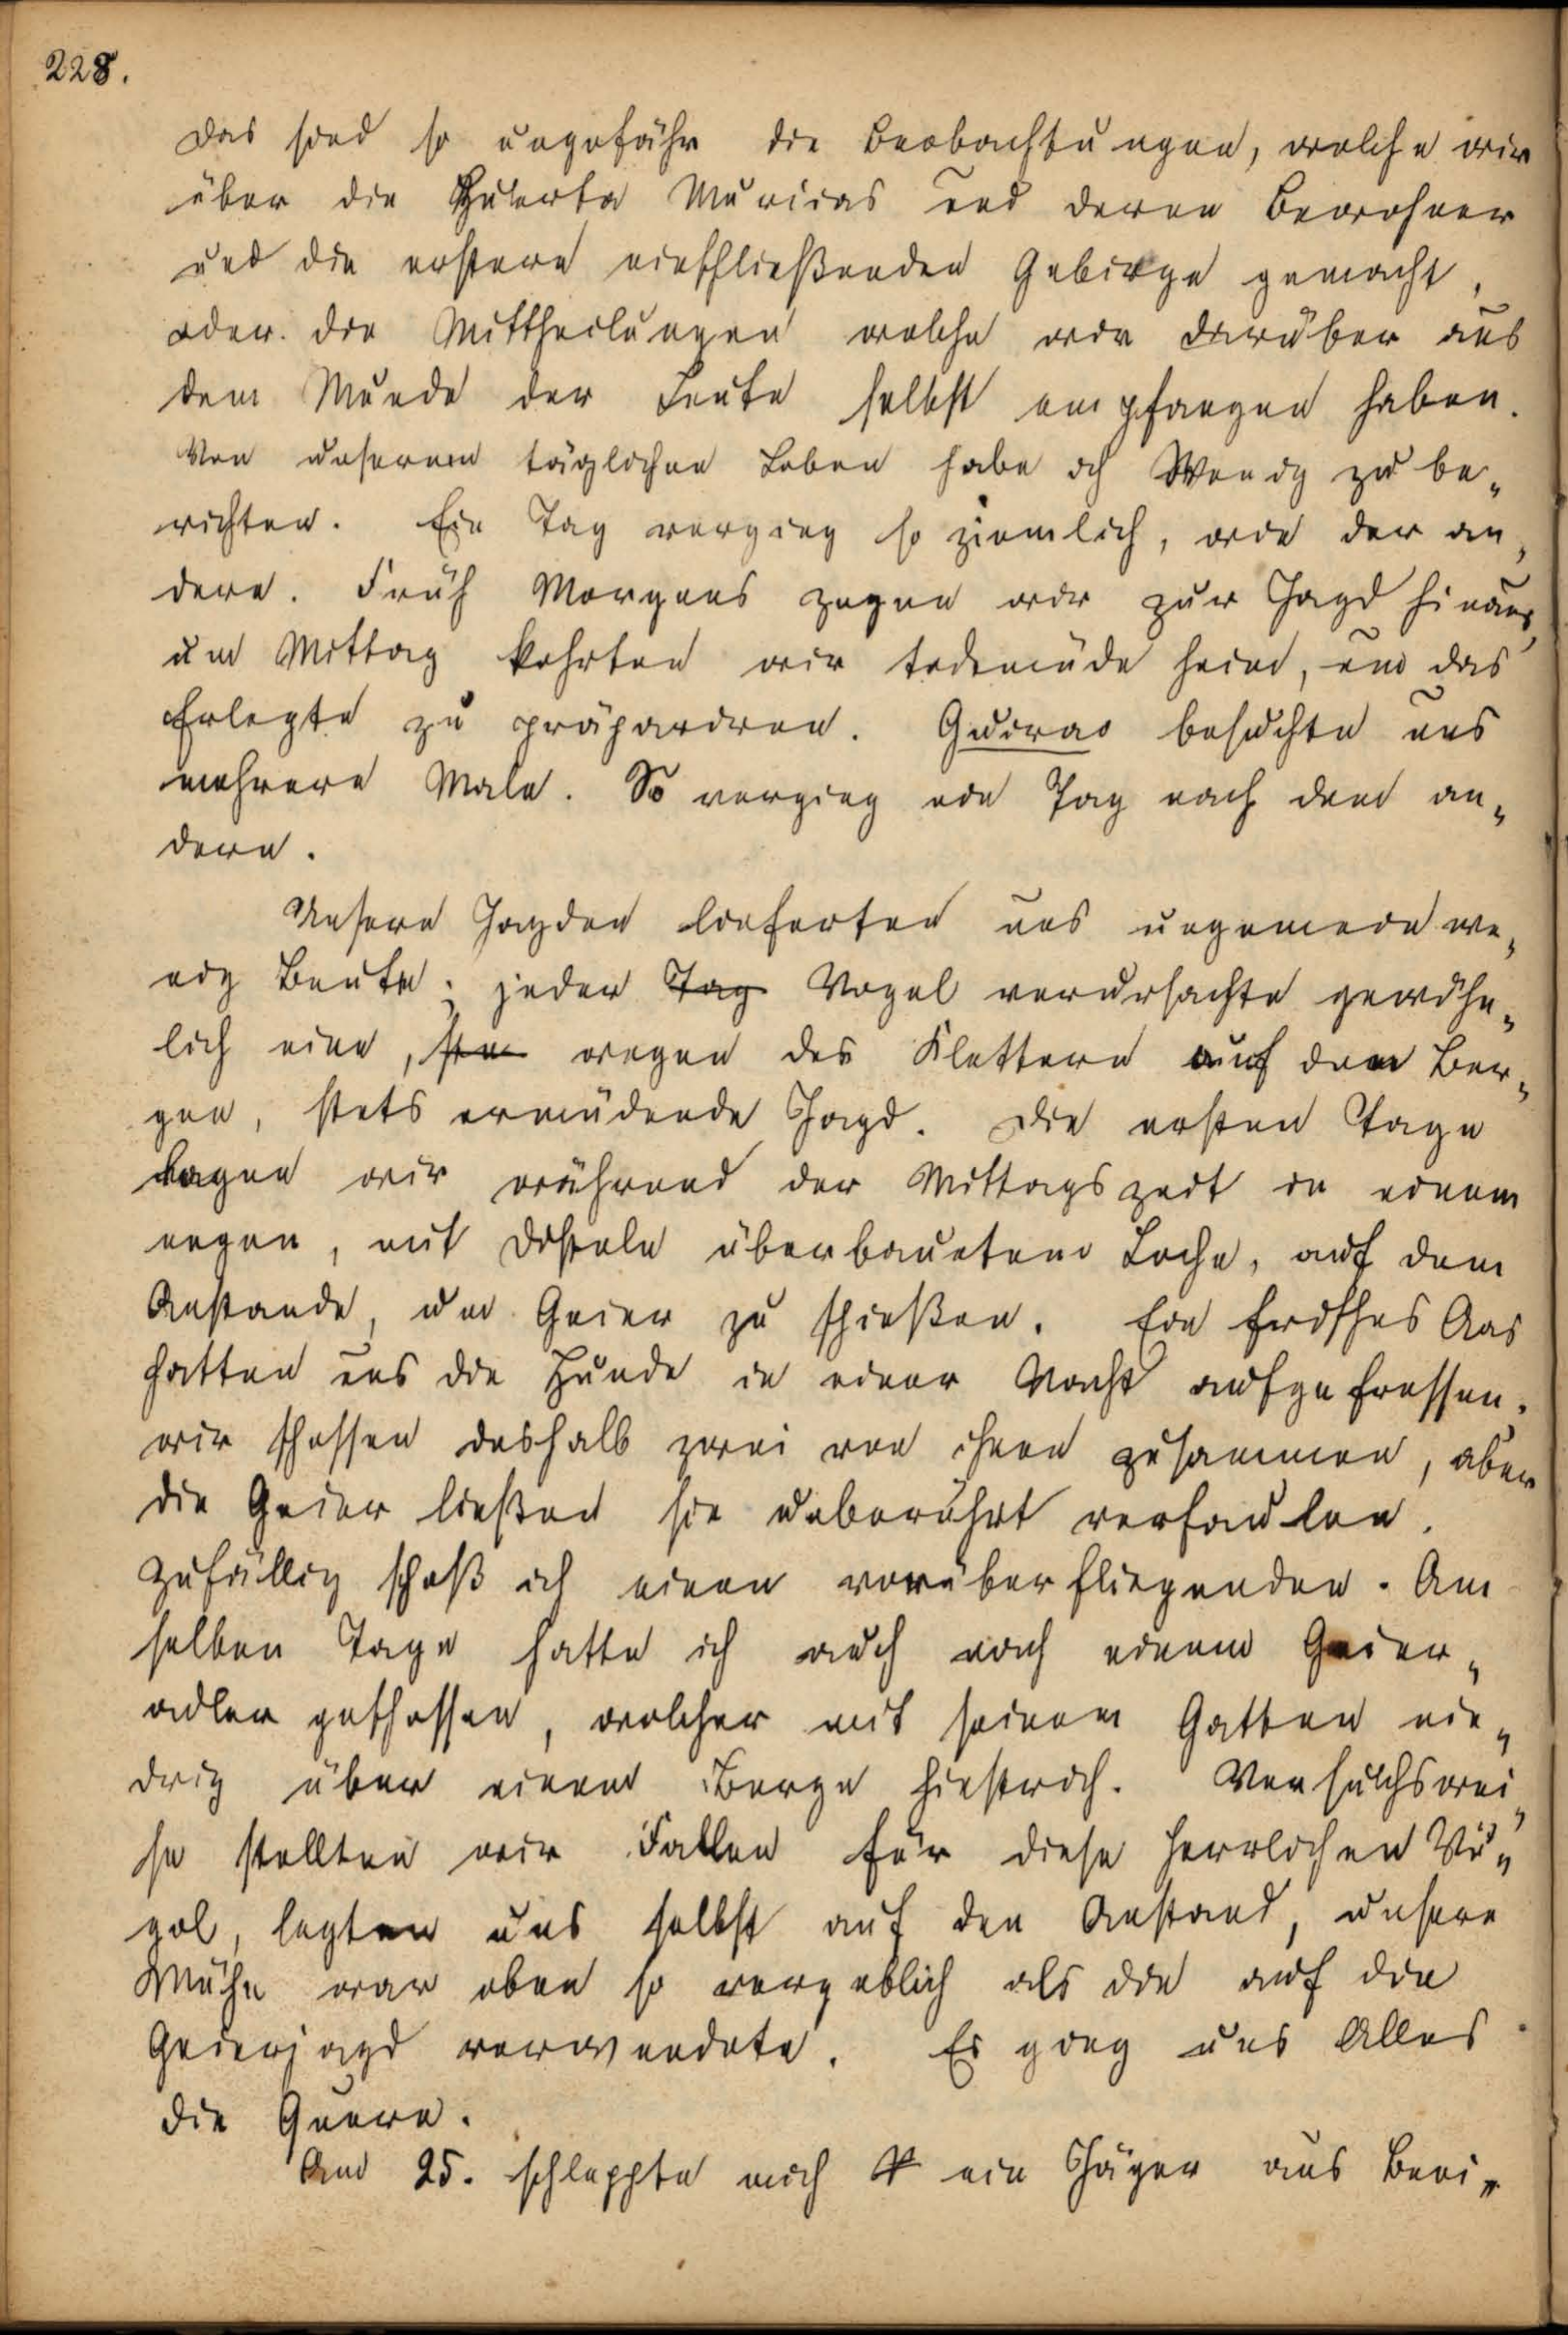 228.
Das sind so ungefähr die Beobachtungen, welche wir
über die Huerta Murcias und deren Bewohner
und die erstere einschließenden Gebirge gemacht,
oder die Mittheilungen welche wir darüber aus
dem Munde der Leute selbst empfangen haben.
Von unserem täglichen Leben habe ich Wenig zu be„
richten. Ein Tag verging so ziemlich, wie der an„
dere. Früh Morgens zogen wir zur Jagd hinaus,
um Mittag kehrten wir todtmüde heim, um das
Erlegte zu präpariren. Guirao besuchte uns
mehrere Male. So verging ein Tag nach dem an„
dern.
Unsere Jagden lieferten uns ungemein we„
nig Beute; jeder Tag Vogel verursachte gewöhn„
lich eine, wegen des Kletterns auf den Ber„
gen, stets ermüdende Jagd. Die ersten Tage
lagen wir während der Mittagszeit in einem
engen, mit Disteln überbauetem Loche, auf dem
Anstande, um Geier zu schießen. Ein frisches Aas
hatten uns die Hunde in einer Nacht aufgefressen,
wir schossen deshalb zwei von ihnen zusammen, aber
die Geier ließen sie unberührt verfaulen.
Zufällig schoß ich einen vorüberfliegenden. Am
selben Tage hatte ich auch nach einem Geier„
adler geschossen, welcher mit seinem Gatten nie„
drig über einem Berge hinstrich. Versuchswei„
se stellten wir Fallen für diese herrlichen Vö„
gel, legten uns selbst auf den Anstand, unsere
Mühe war eben so vergeblich als die auf die
Geierjagd verwendete. Es ging uns Alles
die Queere.
Am 25. schleppte mich ein Jäger aus Beni„